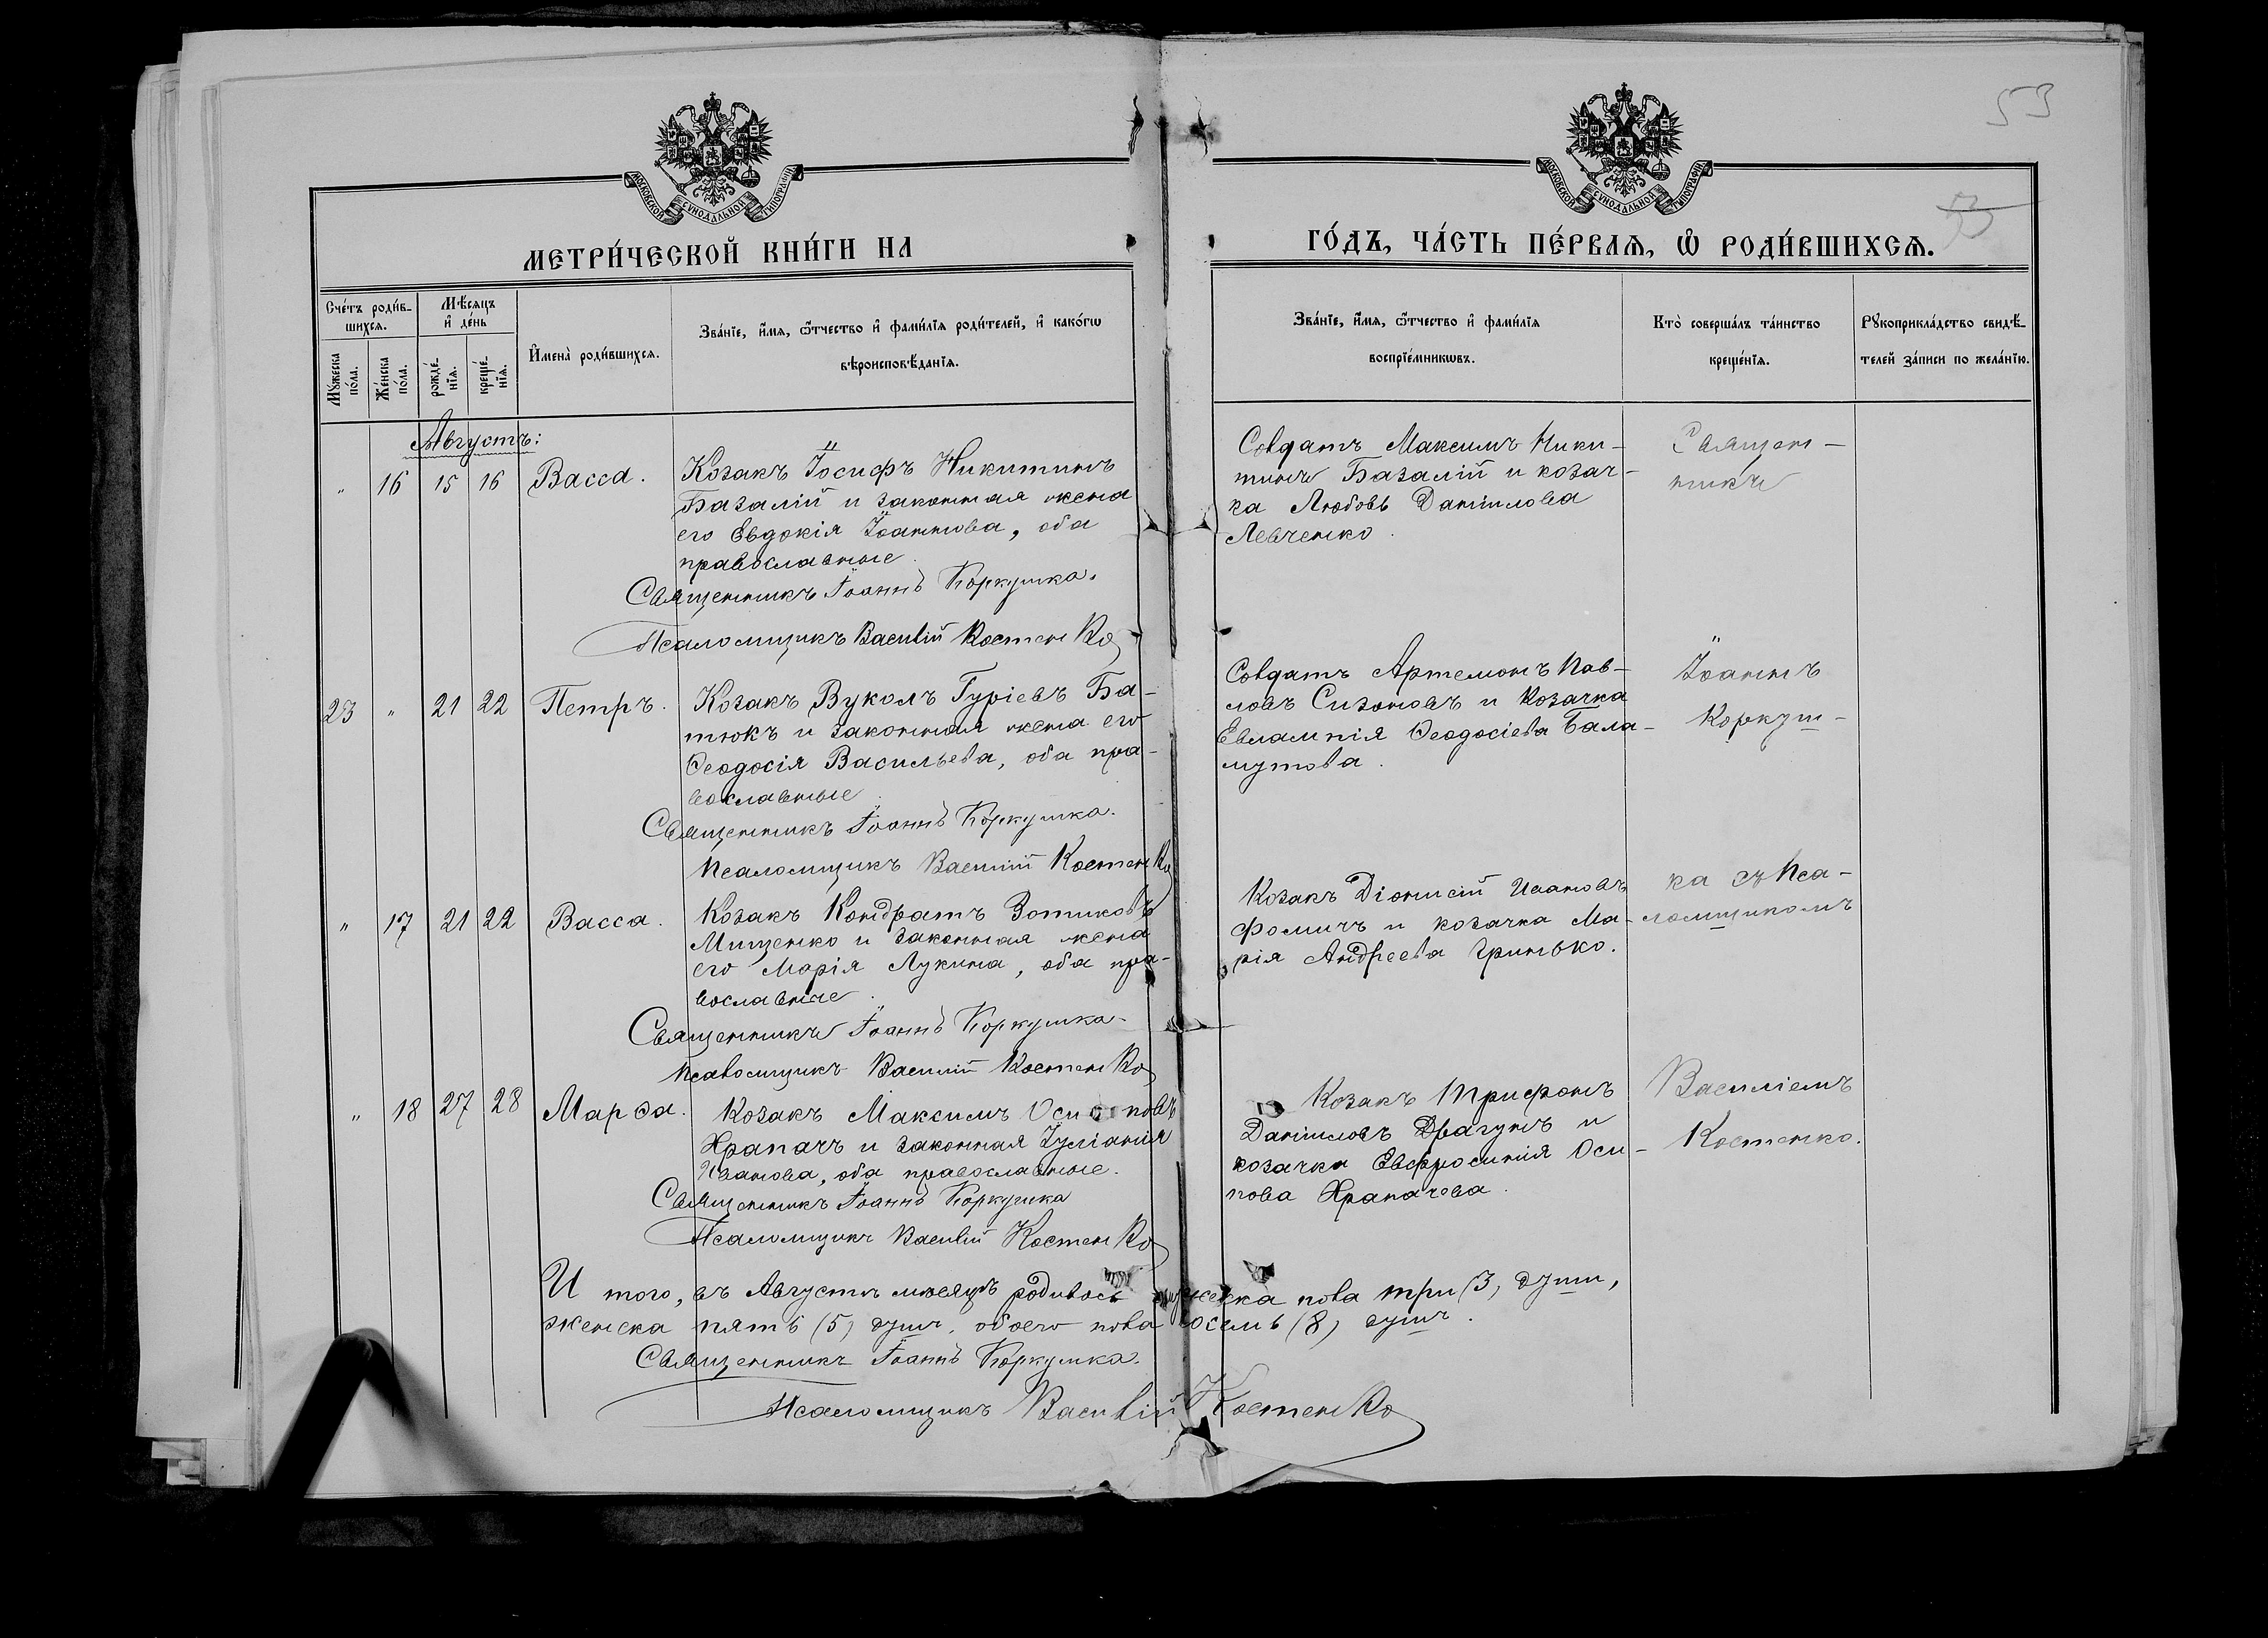 53
53
МОСКОВСКОЙ СѴНОДАЛЬНОЙ ТИПОГРАФІИ
МОСКОВСКОЙ СѴНОДАЛЬНОЙ ТИПОГРАФІИ
МЕТРИ́ЧЕСКОЙ КНИ́ГИ НА
ГО́ДЪ, ЧА́СТЬ ПЕ́РВАѦ, Ѽ РОДИ́ВШИХСѦ.
Сче́тъ роди́в-
шихсѧ.
Мꙋжеска
по́ла.
Же́нска
по́ла.
Мѣ́сѧцъ
и҆ де́нь
рожде́-
нїѧ.
креще́-
нїѧ.
И҆мена̀ роди́вшихсѧ.
Зва́нїе, и҆́мѧ, ѻ҆́тчество и҆ фами́лїѧ роди́телей, и҆ како́гѡ
вѣроисповѣ́данїѧ.
Зва́нїе, и҆́мѧ, ѻ҆́тчество и҆ фами́лїѧ
воспрїе́мникѡвъ.
Кто̀ соверша́лъ та́инство
креще́нїѧ.
Рꙋкоприкла́дство свидѣ́-
телей за́писи по жела́нїю.
Августъ:
" 16 15 16 Васса.
Козакъ Іосифъ Никитинъ
Базалій и законная жена
его Евдокія Іоаннова, оба
православные.
Священникъ Іоаннъ Коркушка.
Псаломщикъ Василій Костенко
Солдатъ Максимъ Ники-
тинъ Базалій и козач-
ка Любовь Даніилова
Левченко.
Священ-
никъ
23 " 21 22 Петръ.
Козакъ Вуколъ Гуріевъ Ба-
тюкъ и законная жена его
Ѳеодосія Васильева, оба пра-
вославные.
Священникъ Іоаннъ Коркушка.
Псаломщикъ Василій Костенко
Солдатъ Артемонъ Пав-
ловъ Сизоновъ и козачка
Евлампія Ѳеодосіева Бала-
мутова.
Іоаннъ
Коркуш-
" 17 21 22 Васса.
Козакъ Кондратъ Зотиковъ
Мищенко и законная жена
его Марія Лукина, оба пра-
вославные.
Священникъ Іоаннъ Коркушка.
Псаломщикъ Василій Костенко
Козакъ Діонисій Ивановъ
Фомичъ и козачка Ма-
рія Андреева Гринько.
ка съ Пса-
ломщикомъ
" 18 27 28 Марѳа.
Козакъ Максимъ Осиповъ
Храпачъ и законная Іуліанія
Иванова, оба православные.
Священникъ Іоаннъ Коркушка
Псаломщикъ Василій Костенко
Козакъ Трифонъ
Даніиловъ Драгунъ и
козачка Евфросинія Оси-
пова Храпачева.
Василіемъ
Костенко.
И того, въ Августѣ мѣсяцѣ родилось мужеска пола три (3) души,
женска пять (5) душъ, обоего пола восемь (8) душъ.
Священникъ Іоаннъ Коркушка.
Псаломщикъ Василій Костенко